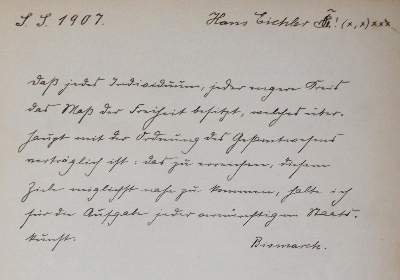 S. S. 1907. Hans Eichler III! (x,x)xxx
Daß jedes Individuum, jeder engere Kreis
das Maß der Freiheit besitzt, welches über-
haupt mit der Ordnung des Gesamtwesens
verträglich ist: das zu erreichen, diesem
Ziele möglichst nahe zu kommen, halte ich
für die Aufgabe jeder vernünftigen Staats-
kunst.
Bismarck.